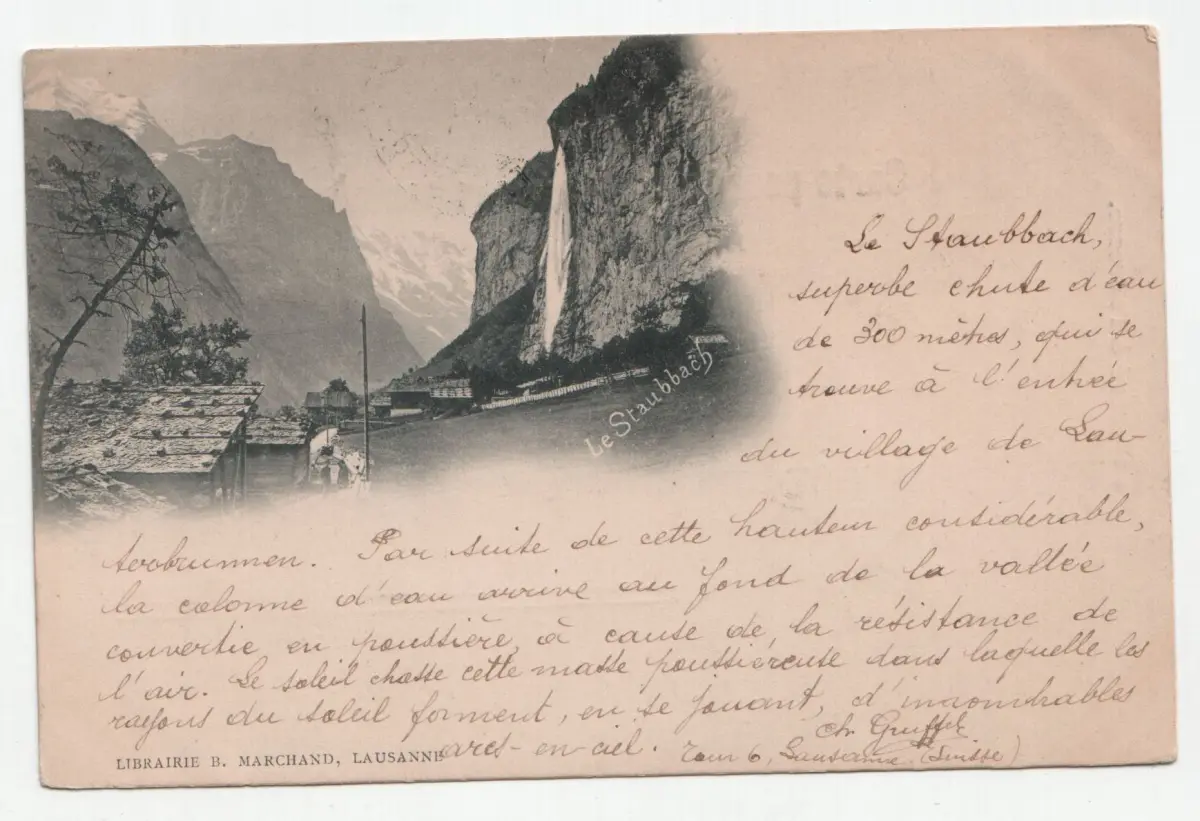 Le Staubbach
Le Staubbach,
superbe chute d'eau
de 300 mètres, qui se
trouve à l'entrée
du village de Lau-
terbrunnen. Par suite de cette hauteur considérable,
la colonne d'eau arrive au fond de la vallée
convertie en poussière, à cause de la résistance de
l'air. Le soleil chasse cette masse poussiéreuse dans laquelle les
rayons du soleil forment, en se jouant, d'innombrables
arcs-en-ciel.
Ch.
Tour 6, Lausanne (Suisse)
LIBRAIRIE B. MARCHAND, LAUSANNE